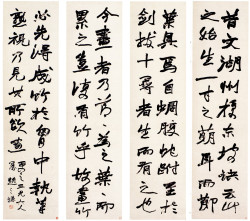 昔文湖州授東坡訣云竹
之始生一寸之萌耳而節
葉具焉自蜩腹蛇蚹至於
劍拔十尋者生而有之也
今畫者乃節節為之葉葉
累之豈復有竹乎故畫竹
必先得成竹於胸中執筆
熟視乃見其所欲畫者